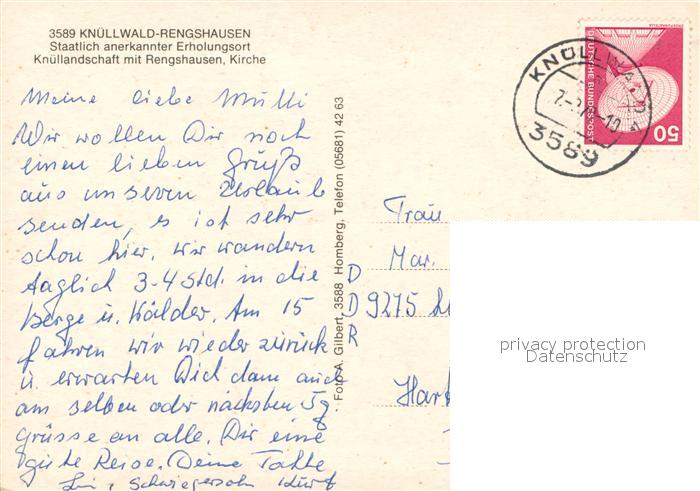 3589 KNÜLLWALD-RENGSHAUSEN
Staatlich anerkannter Erholungsort
Knüllandschaft mit Rengshausen, Kirche
Meine liebe Mulli
Wir wollen Dir noch
einen lieben Gruß
aus unseren Urlaub
senden, es ist sehr
schon hier, wir wandern
taglich 3-4 Std. in die
Berge u. Wälder. Am 15
fahren wir wieder zurück
u. erwarten Dich dann auch
am selben oder nächsten
Grüsse an alle. Dir eine
gute Reise. Deine
Schwiegersohn Kurt
Foto A. Gilbert, 3588 Homberg, Telefon (05681) 42 63
KNÜLLWA
3589
DEUTSCHE BUNDESPOST
50
Frau
Mar.
DDR
9275
Hart
privacy protection
Datenschutz